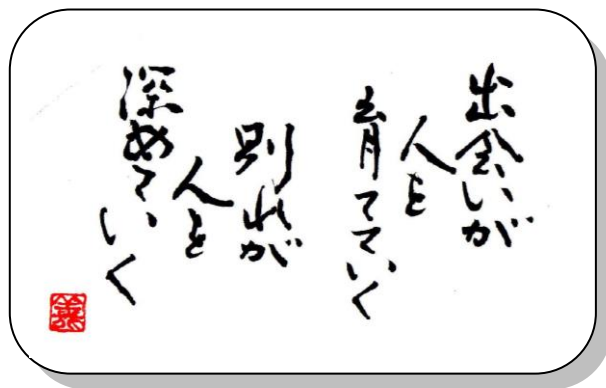 出会いが
人を
育てていく
別れが
人を
深めていく